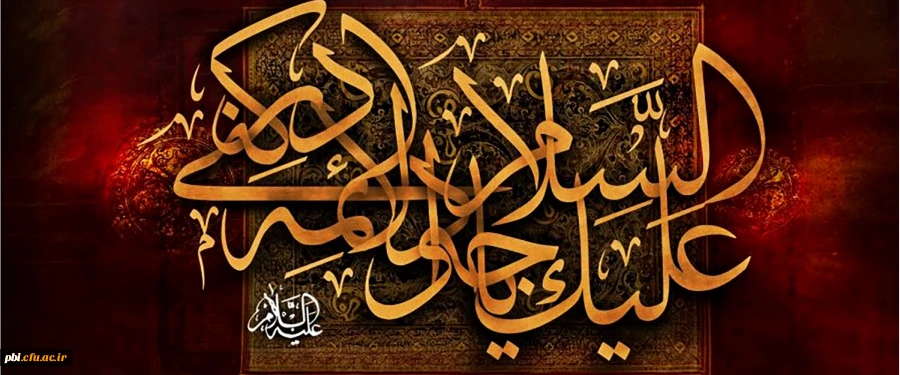 السلام عليك يا جواد الأئمه ادركنى
عليه السلام
pbi.cfu.ac.ir